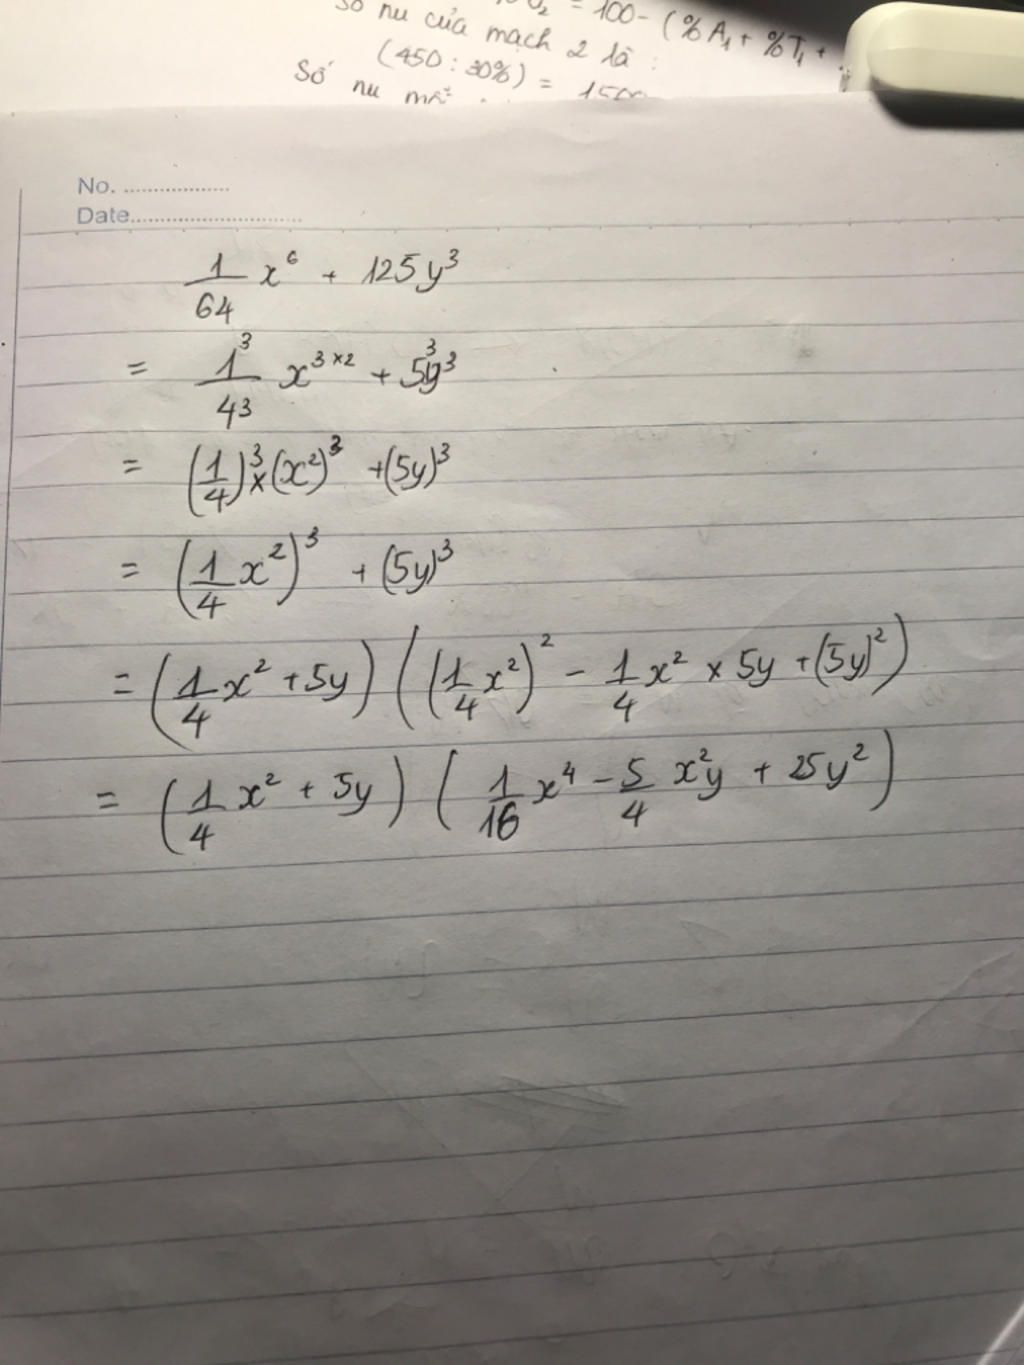 = 100 - (%A₁ + %T₁ +
số nu của mạch 2 là :
(450 : 30%) =
Số nu
No. ..................
Date............................
1/64 x⁶ + 125y³
= 1³/4³ x³ˣ² + 5³y³
= (1/4)³ × (x²)³ + (5y)³
= (1/4 x²)³ + (5y)³
= (1/4 x² + 5y) ((1/4 x²)² - 1/4 x² × 5y + (5y)²)
= (1/4 x² + 5y) (1/16 x⁴ - 5/4 x²y + 25y²)